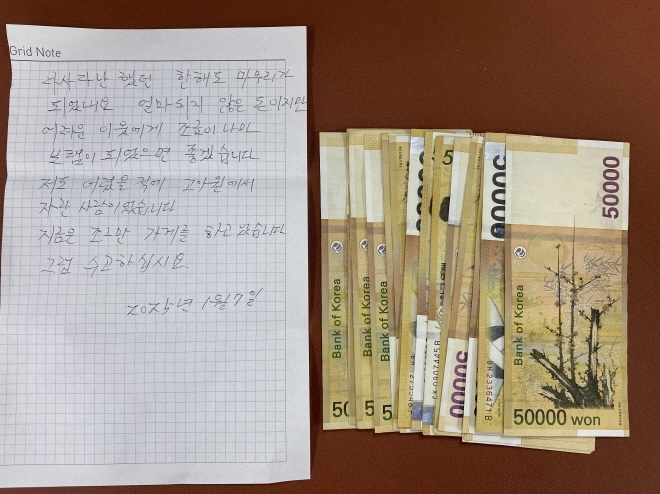 Grid Note
다사다난 했던 한해도 마무리가
되었네요 얼마되지 않은 돈이지만
어려운 이웃에게 조금이나마
보탬이 되었으면 좋겠습니다
저도 어렸을적에 고아원에서
자란 사람이었습니다
지금은 조그만 가게를 하고 있습니다
그럼 수고하십시요.
2025년 1월 7일
Bank of Korea
50
Bank of Korea
5
Bank of Korea
5
50000
50000
50000
BH2336471B
Bank of Korea
50000 won